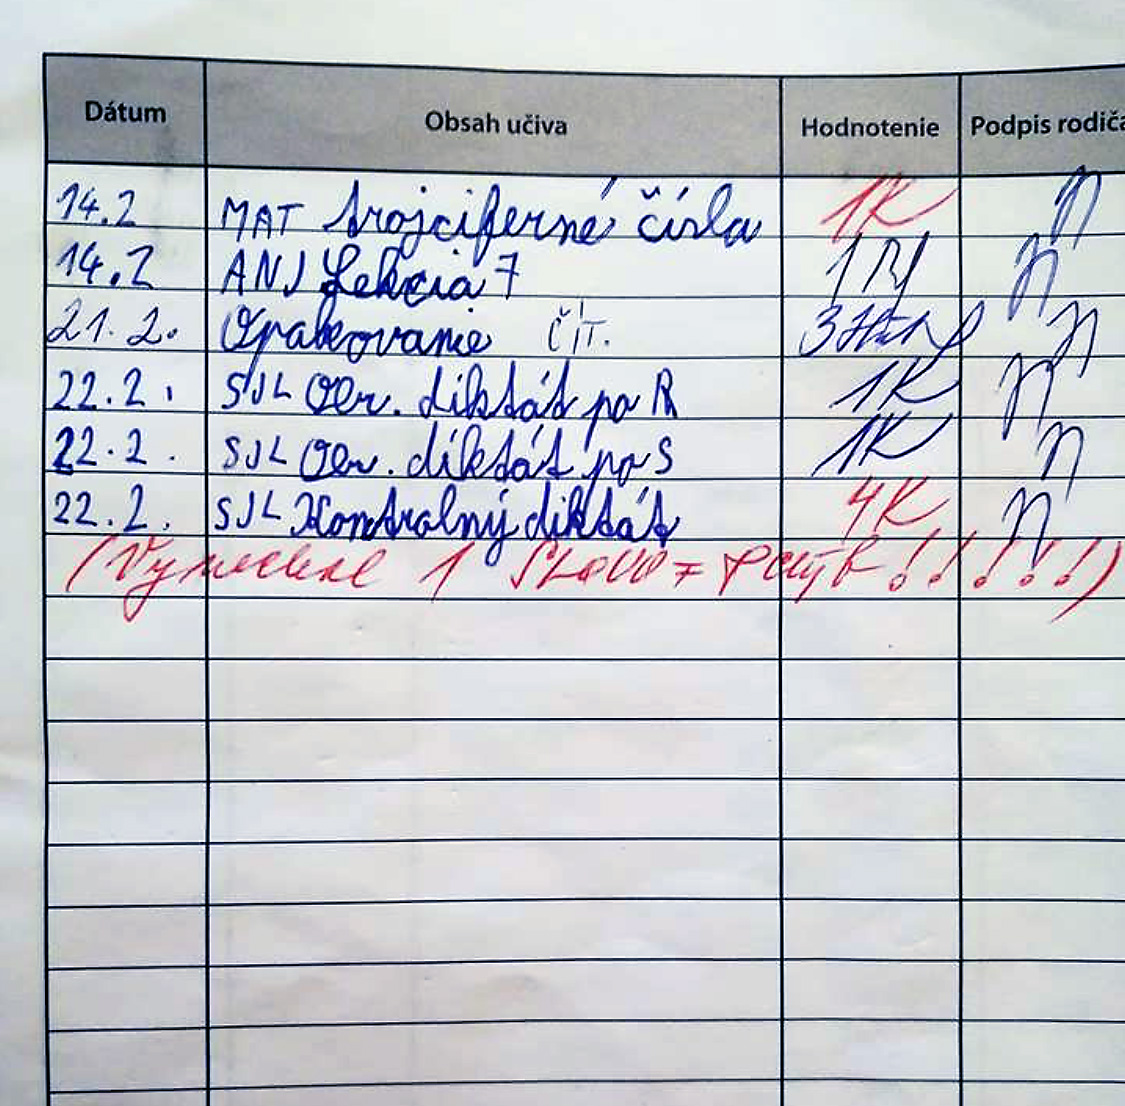 Dátum Obsah učiva Hodnotenie Podpis rodiča
14.2 MAT trojciferné čísla 1K
14.2 ANJ Lekcia 7 1
21.2. Opakovanie ČÍT. 3
22.2. SJL Ov. diktát po R 1K
22.2. SJL Ov. diktát po S 1K
22.2. SJL Kontrolný diktát 4K
(Vynechal 1 slovo = chýb!!!!!)